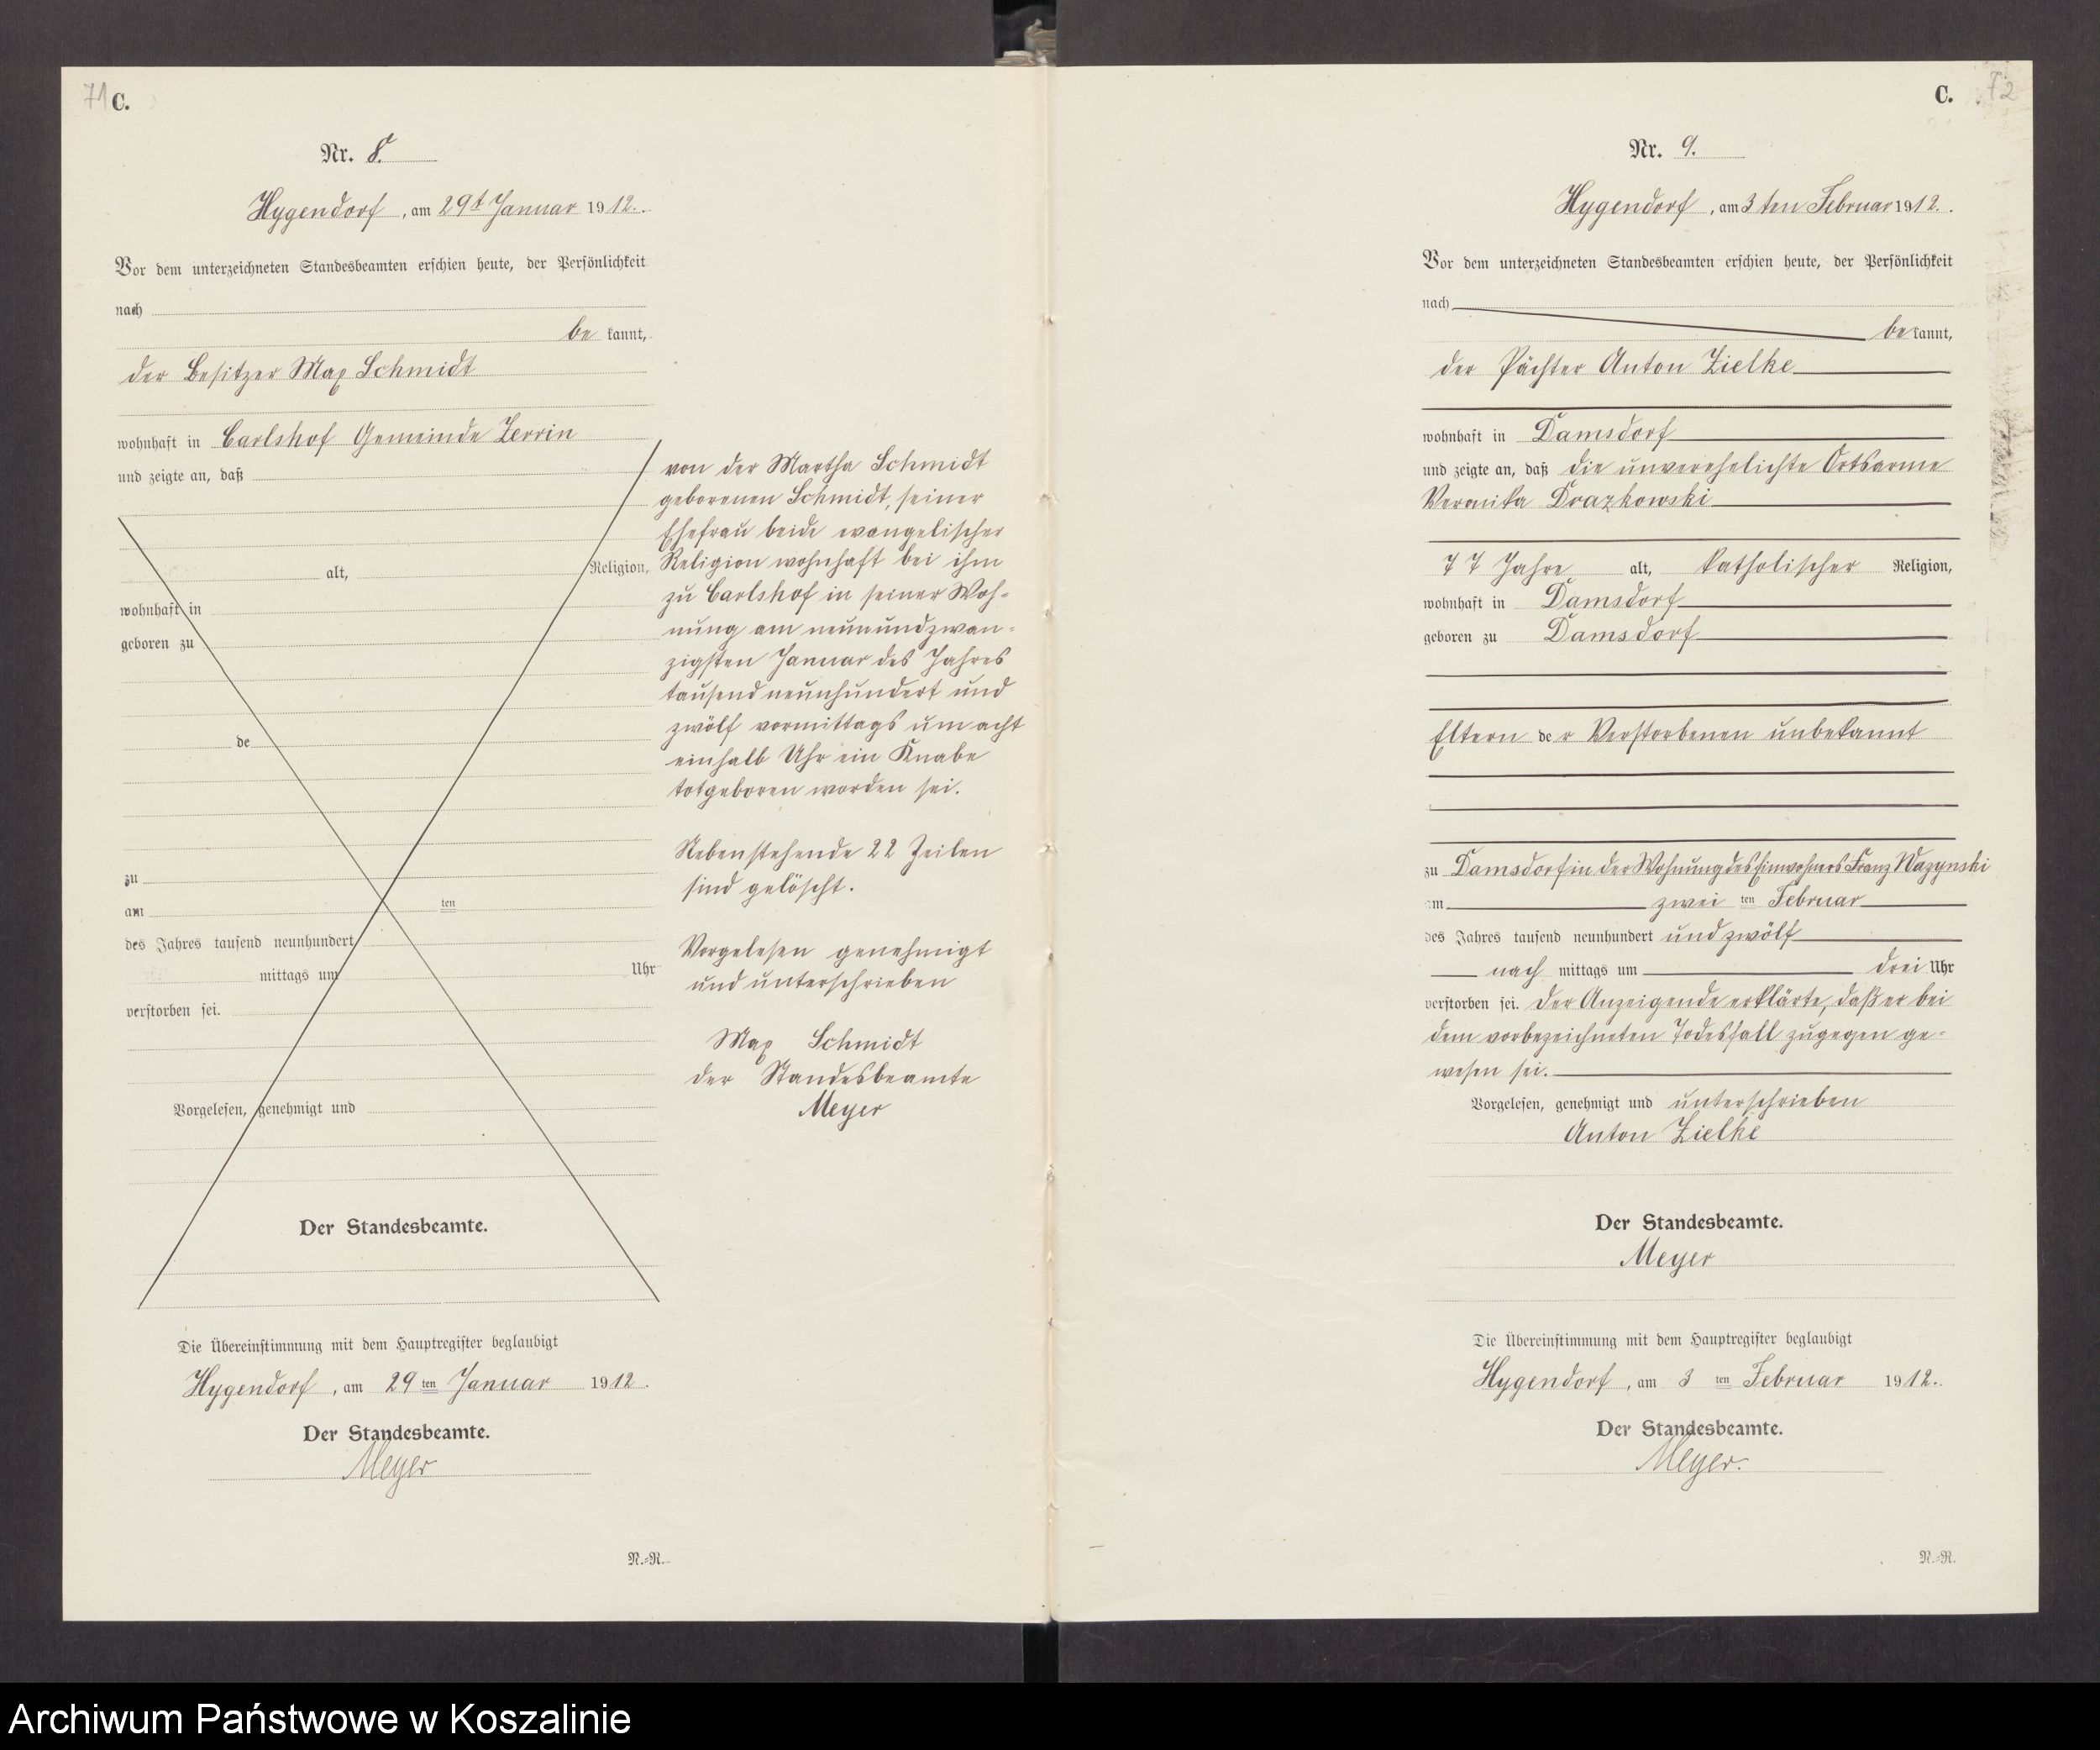 71 C.
Nr. 8.
Hygendorf, am 29t Januar 1912.
Vor dem unterzeichneten Standesbeamten erschien heute, der Persönlichkeit
nach
be kannt,
der Besitzer Max Schmidt
wohnhaft in Carlshof Gemeinde Zerrin
und zeigte an, daß
alt, Religion,
wohnhaft in
geboren zu
de
zu
am ten
des Jahres tausend neunhundert
mittags um Uhr
verstorben sei.
Vorgelesen, genehmigt und
Der Standesbeamte.
von der Martha Schmidt
geborenen Schmidt, seiner
Ehefrau beide evangelischer
Religion wohnhaft bei ihm
zu Carlshof in seiner Woh-
nung am neunundzwan-
zigsten Januar des Jahres
tausend neunhundert und
zwölf vormittags um acht
einhalb Uhr ein Knabe
totgeboren worden sei.
Nebenstehende 22 Zeilen
sind gelöscht.
Vorgelesen genehmigt
und unterschrieben
Max Schmidt
der Standesbeamte
Meyer
Die Übereinstimmung mit dem Hauptregister beglaubigt
Hygendorf, am 29 ten Januar 1912.
Der Standesbeamte.
Meyer
N.-R.
C. 72
Nr. 9.
Hygendorf, am 3 ten Februar 1912.
Vor dem unterzeichneten Standesbeamten erschien heute, der Persönlichkeit
nach
be kannt,
der Pächter Anton Zielke
wohnhaft in Damsdorf
und zeigte an, daß die unverehelichte Ortsarme
Veronika Drazkowski
77 Jahre alt, katholischer Religion,
wohnhaft in Damsdorf
geboren zu Damsdorf
Eltern der Verstorbenen unbekannt
zu Damsdorf in der Wohnung des Einwohners Franz Wazynski
am zwei ten Februar
des Jahres tausend neunhundert und zwölf
nach mittags um drei Uhr
verstorben sei. Der Anzeigende erklärte, daß er bei
dem vorbezeichneten Todesfall zugegen ge-
wesen sei.
Vorgelesen, genehmigt und unterschrieben
Anton Zielke
Der Standesbeamte.
Meyer
Die Übereinstimmung mit dem Hauptregister beglaubigt
Hygendorf, am 3 ten Februar 1912.
Der Standesbeamte.
Meyer.
N.-R.
Archiwum Państwowe w Koszalinie